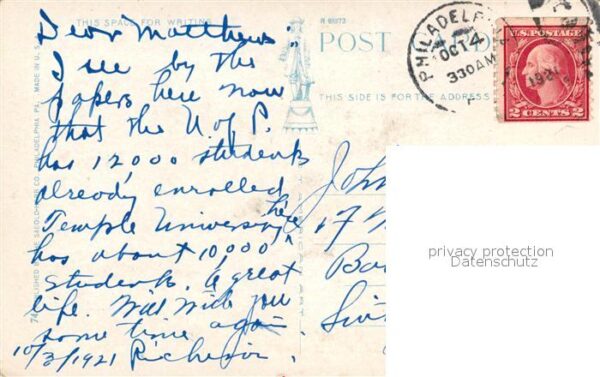 THIS SPACE FOR WRITING
R 69373
Dear Matthews:
I see by the
papers here now
that the U. of P.
has 12,000 students
already enrolled
Temple University here
has about 10,000
students. A great
life. Will write you
some time again.
10/3/1921
POST
THIS SIDE IS FOR THE ADDRESS
PHILADEL
OCT 4
330 AM
1921
U.S. POSTAGE
2 CENTS 2
John
17
privacy protection
Datenschutz
PHILADELPHIA, PA. MADE IN U.S.